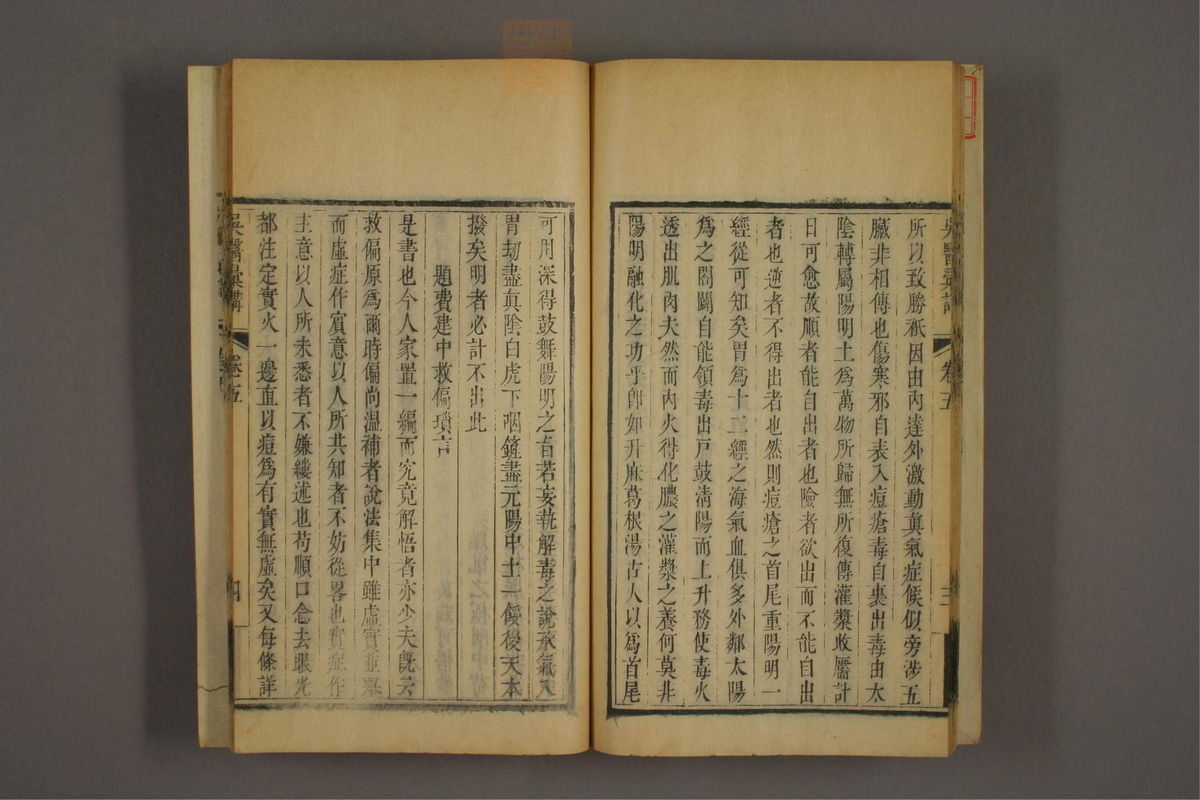 吳醫彙講
卷五
三
所以致勝祇因由內達外激動眞氣症候似旁涉五
臟非相傳也傷寒邪自表入痘瘡毒自裏出毒由太
陰轉屬陽明土爲萬物所歸無所復傳灌漿收靨計
日可愈故順者能自出者也險者欲出而不能自出
者也逆者不得出者也然則痘瘡之首尾重陽明一
經從可知矣胃爲十二經之海氣血俱多外鄰太陽
爲之開闔自能領毒出戸鼓淸陽而上升務使毒火
透出肌肉夫然而內火得化膿之灌漿之養何莫非
陽明融化之功乎卽如升麻葛根湯古人以爲首尾
可用深得鼓舞陽明之旨若妄執解毒之說承氣入
胃劫盡眞陰白虎下咽鏟盡元陽中土一餒後天本
撥矣明者必計不出此
題費建中救偏瑣言
是書也今人家置一編而究竟解悟者亦少夫旣云
救偏原爲爾時偏尚溫補者說法集中雖虛實並舉
而虛症作賓意以人所共知者不妨從畧也實症作
主意以人所未悉者不嫌縷述也苟順口念去眼光
都注定實火一邊直以痘爲有實無虛矣又每條詳
吳醫彙講
卷五
四